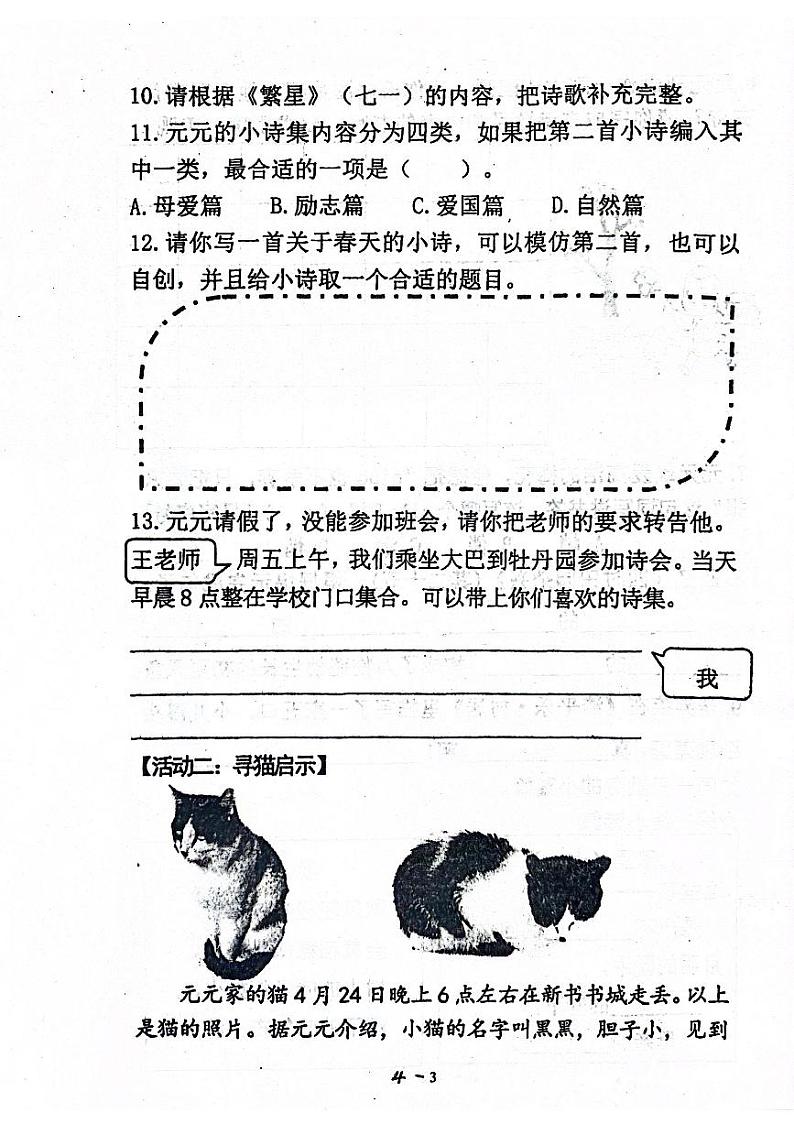 10.请根据《繁星》（七一）的内容，把诗歌补充完整。
11.元元的小诗集内容分为四类，如果把第二首小诗编入其
中一类，最合适的一项是（　　）。
A.母爱篇　B.励志篇　C.爱国篇　D.自然篇
12.请你写一首关于春天的小诗，可以模仿第二首，也可以
自创，并且给小诗取一个合适的题目。
13.元元请假了，没能参加班会，请你把老师的要求转告他。
王老师　周五上午，我们乘坐大巴到牡丹园参加诗会。当天
早晨8点整在学校门口集合。可以带上你们喜欢的诗集。
我
【活动二：寻猫启示】
元元家的猫4月24日晚上6点左右在新书书城走丢。以上
是猫的照片。据元元介绍，小猫的名字叫黑黑，胆子小，见到
4-3